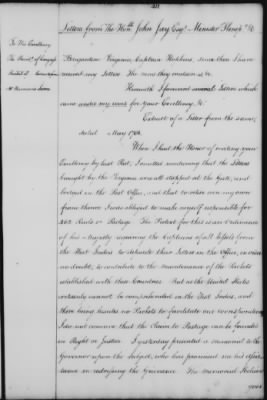 Letters from The Honble John Jay Esqr. Minister Plenip. &c
To His Excellency
The
Brigantine Virginia, Captain Robbins, since then I have
receiv'd any Letters. The ones they mention is &c.
Herewith I forward several Letters which
came under my cover for your Excellency &c.
Extract of a Letter from the same;
dated May 1780.
When I had the Honor of writing your
Excellency by last Post, I omitted mentioning that the Letters
brought by the Virginia were all stopped at the
lodged in the Post Office, and that to obtain even my own
from thence I was obliged to make myself responsible for
Reals in Postage. The Pretext for this is an Ordinance
of his Majesty requiring the Captains of all Vessels from
the West Indies to deposite their Letters in the Office, in order
no doubt, to contribute to the maintenance of the Packets
established with those Countries. But as the United States
certainly cannot be comprehended in the West Indies, and
there being thanks no Packets to facilitate our correspondence
I do not conceive that the Claim to Postage can be founded
in Right or Justice. I yesterday presented a memorial to the
Governor upon the subject, who has promised me his
in redressing the Grievance. The memorial